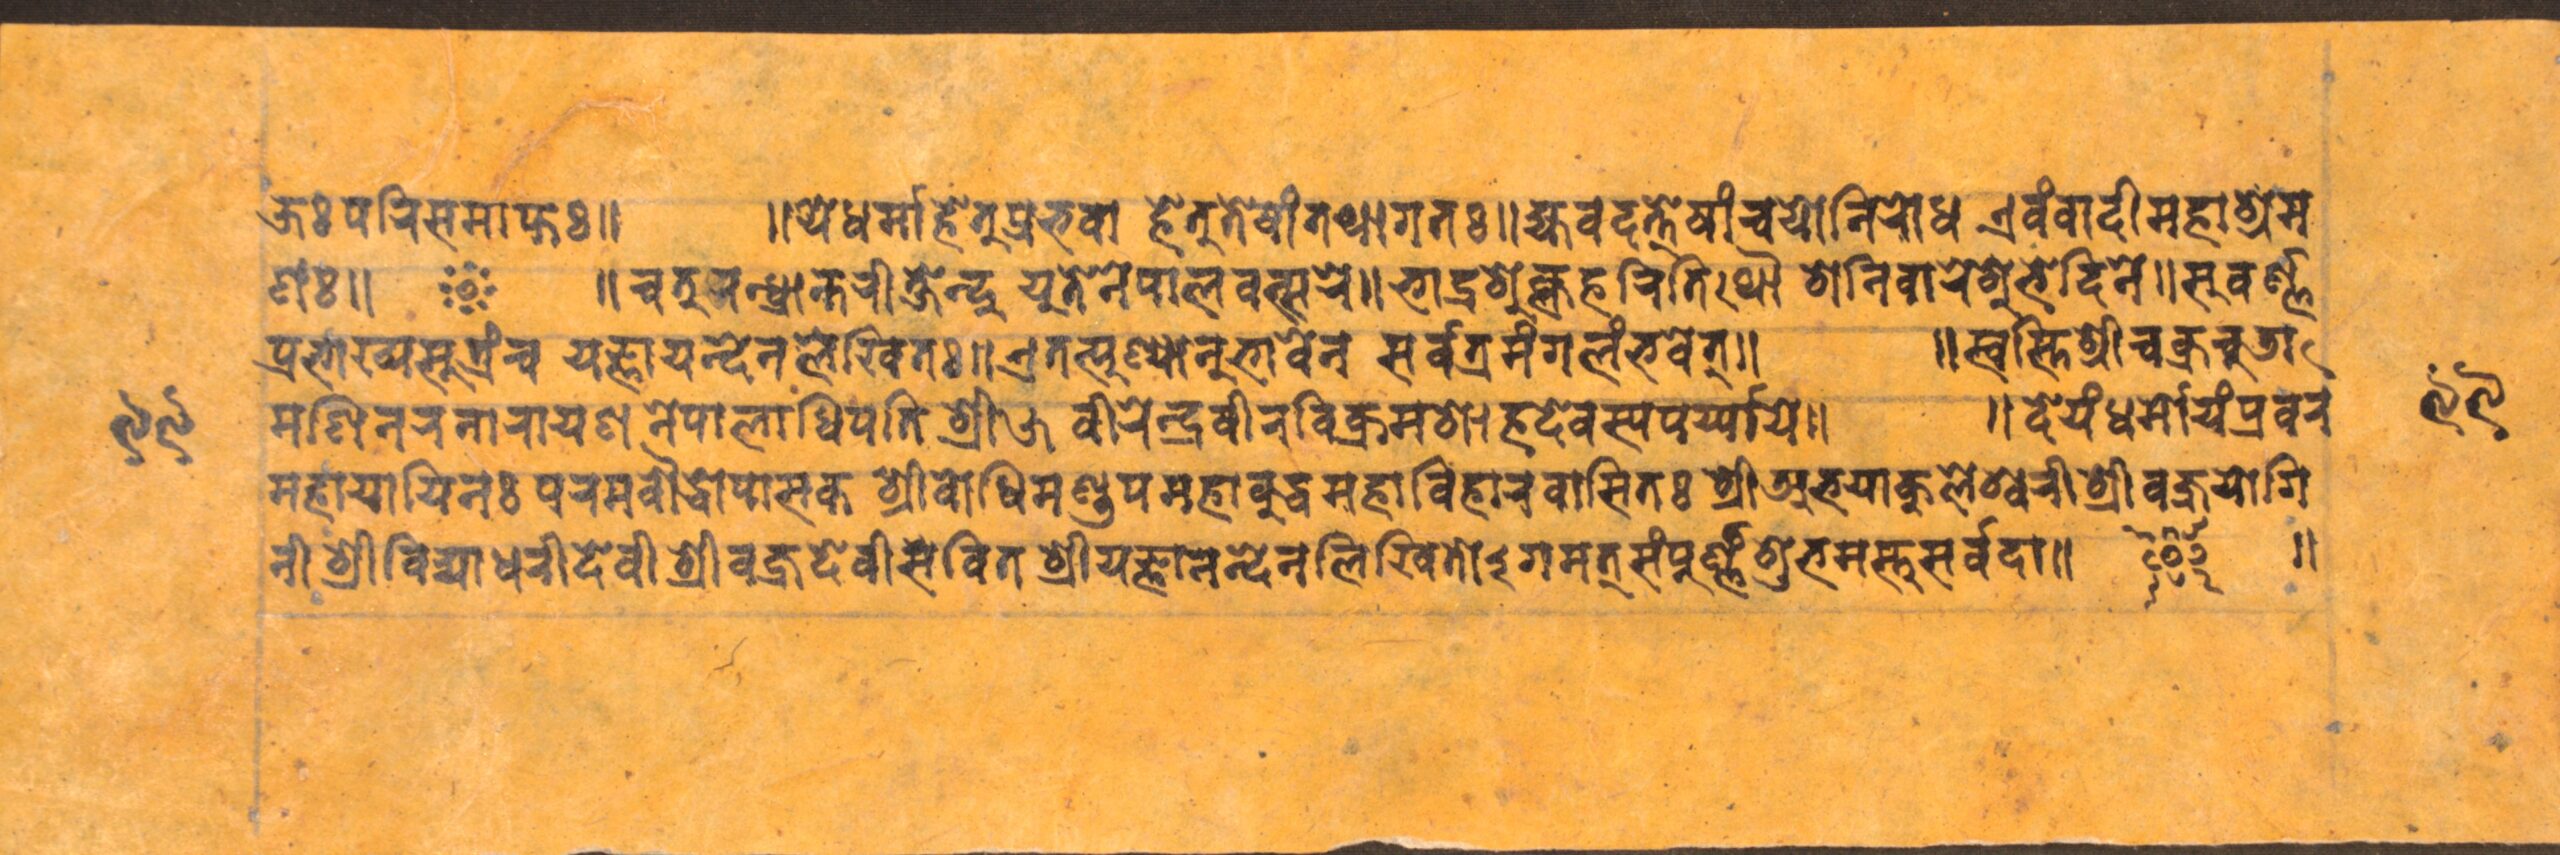 जः परिसमाप्तः॥ ॥ये धर्मा हेतुप्रभवा हेतु तेषां तथागतः॥ ह्यवदत्तेषां च यो निरोध एवं वादी महाश्रम
णंः॥ ॥चतुरन्ध्रान्तरीक्षेन्दु युते नेपालवत्सरे॥ भाद्रशुक्लहरितिथौ शनिवारे शुभे दिने॥ सुवर्ण्ण
प्रभाख्यसुत्रं च यज्ञायन्देन लेखितः॥ एतत्पुण्यानुभावेन सर्वत्र मंगलं भवेत्॥ ॥स्वस्ति श्री चक्रचुडा
मणि नरनारायण नेपालाधिपति श्री५ वीरेन्द्रवीरविक्रमशाहदेवस्य पर्य्याये॥ ॥देयं धर्मो यं प्रवर
महायायिनः परमबौद्धोपासक श्रीबोधिमण्डपमहाबुद्धमहाविहारवासितः श्रीअभयाकुलेश्वरी श्रीवज्रयोगि
नी श्रीविद्याधरीदेवी श्रीवज्रदेवीसेवित श्रीयज्ञानन्देन लिखितोऽगमत् संपुर्ण्णं शुभमस्तु सर्वदा॥ ॥
९९
९९